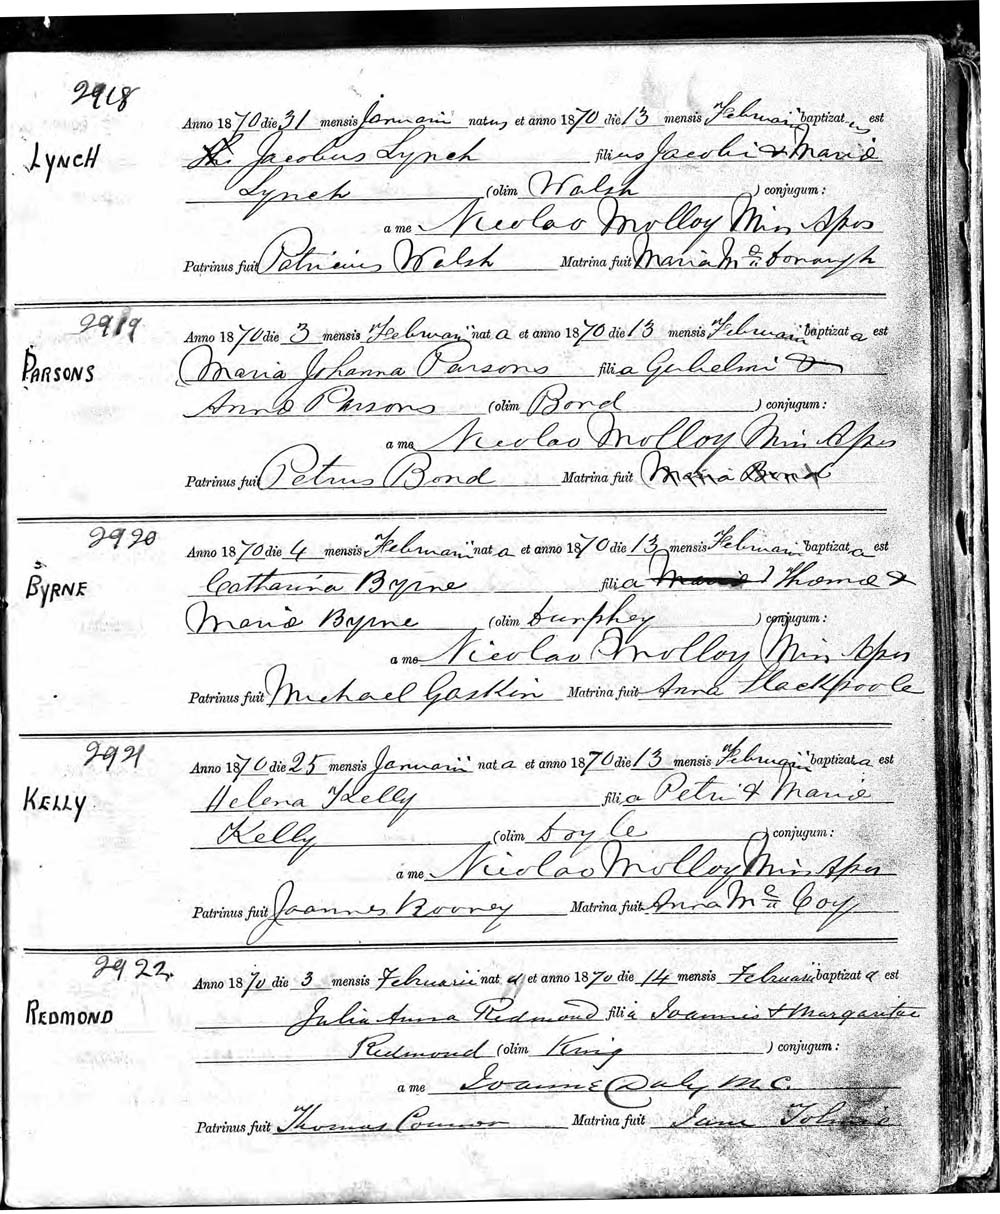 2918
Anno 1870 die 31 mensis Januarii natus et anno 1870 die 13 mensis Februarii baptizatus est
LYNCH
Jacobus Lynch filius Jacobi & Mariæ
Lynch (olim Walsh ) conjugum:
a me Nicolao Molloy Miss Apos
Patrinus fuit Patricius Walsh Matrina fuit Maria McDonaugh
2919
Anno 1870 die 3 mensis Februarii nat a et anno 1870 die 13 mensis Februarii baptizat a est
PARSONS
Maria Johanna Parsons filia Gulielmi &
Annæ Parsons (olim Bond ) conjugum:
a me Nicolao Molloy Miss Apos
Patrinus fuit Petrus Bond Matrina fuit Maria Bond
2920
Anno 1870 die 4 mensis Februarii nat a et anno 1870 die 13 mensis Februarii baptizat a est
BYRNE
Catharina Byrne filia Mariæ Thomæ &
Mariæ Byrne (olim Dunphey ) conjugum:
a me Nicolao Molloy Miss Apos
Patrinus fuit Michael Gaskin Matrina fuit Anna Stackpoole
2921
Anno 1870 die 25 mensis Januarii nat a et anno 1870 die 13 mensis Februarii baptizat a est
KELLY
Helena Kelly filia Petri & Mariæ
Kelly (olim Doyle ) conjugum:
a me Nicolao Molloy Miss Apos
Patrinus fuit Joannes Rooney Matrina fuit Anna McCoy
2922
Anno 1870 die 3 mensis Februarii nat a et anno 1870 die 14 mensis Februarii baptizat a est
REDMOND
Julia Anna Redmond filia Joannis & Margaritae
Redmond (olim King ) conjugum:
a me Joanne Daly M.C.
Patrinus fuit Thomas Connor Matrina fuit Jane